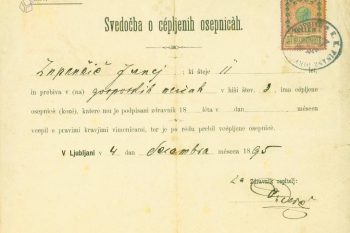 Svedočba o cépljenih osepnicàh.
Zupančič Juraj, ki šteje 11 let,
in prebiva v (na) gosposkih ulicah v hiši štev. 3, ima cépljene
osepnicé (kozé), katere mu je podpisani zdravnik 18 léta v dan méseca
vcepil s pravimi kravjimi vimenicami, ter jo po rédu prebil vcepljene osepnicé.
V Ljubljani v 4. dan decembra méseca 1895
Zdravnik cepitelj: